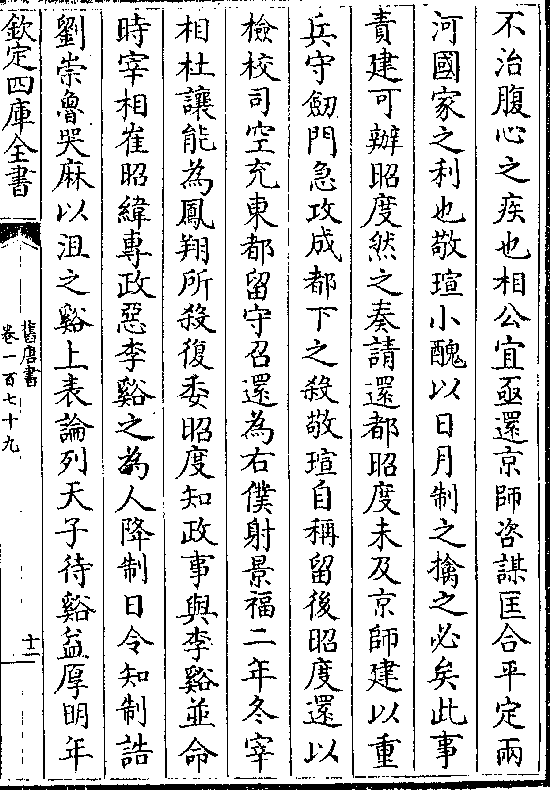 不治腹心之疾也相公宜亟還京師咨謀匡合平定兩
河國家之利也敬瑄小醜以日月制之擒之必矣此事
責建可辦昭度然之奏請還都昭度未及京師建以重
兵守劒門急攻成都下之殺敬瑄自稱留後昭度還以
檢校司空充東都留守召還為右僕射景福二年冬宰
相杜讓能為鳳翔所殺復委昭度知政事與李谿並命
時宰相崔昭緯專政惡李谿之為人降制日令知制誥
劉崇魯哭麻以沮之谿上表論列天子待谿益厚明年
欽定四庫全書
舊唐書
卷一百七十九
十二